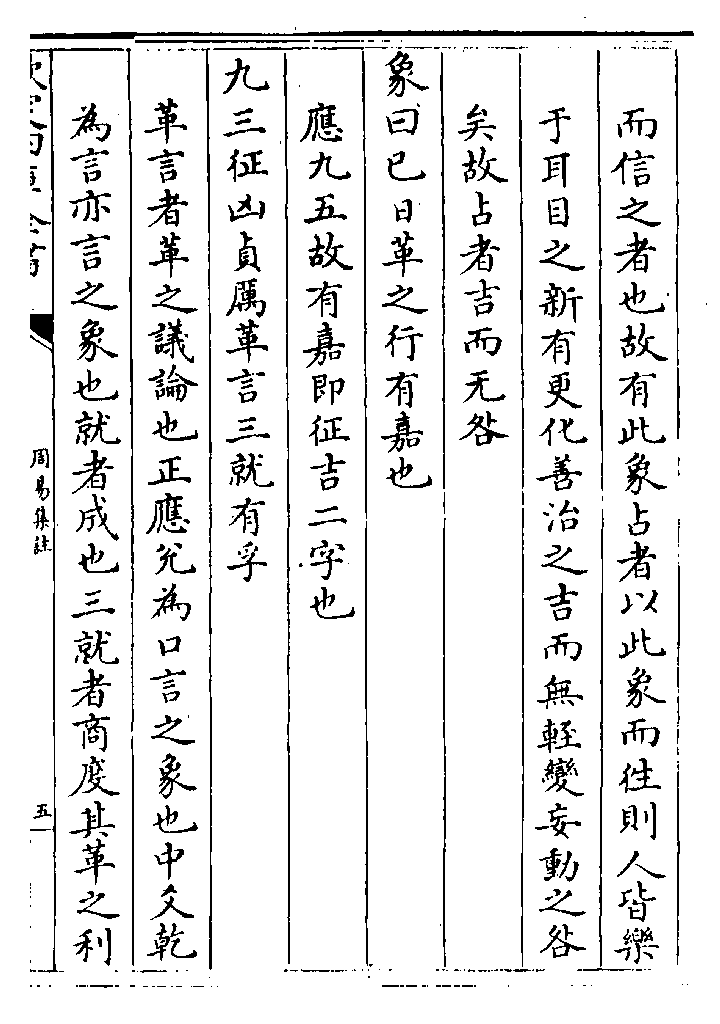 而信之者也故有此象占者以此象而往則人皆樂
于耳目之新有更化善治之吉而無輕變妄動之咎
矣故占者吉而无咎
象曰已日革之行有嘉也
應九五故有嘉即征吉二字也
九三征凶貞厲革言三就有孚
革言者革之議論也正應兊為口言之象也中爻乾
為言亦言之象也就者成也三就者商度其革之利
欽定四庫全書
周易集註
五